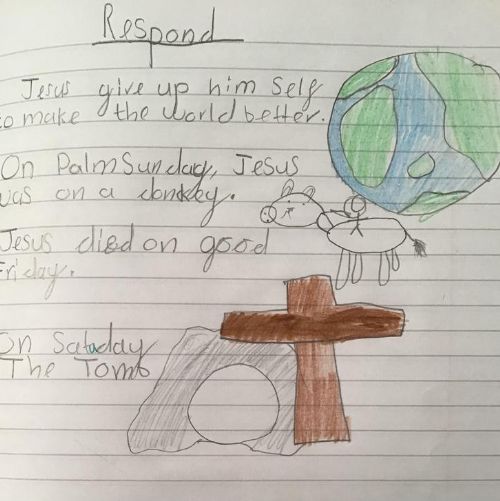 Respond
Jesus give up him Self
to make the world better.
On Palm Sunday, Jesus
was on a donkey.
Jesus died on good
Friday.
On Satuday
The Tomb